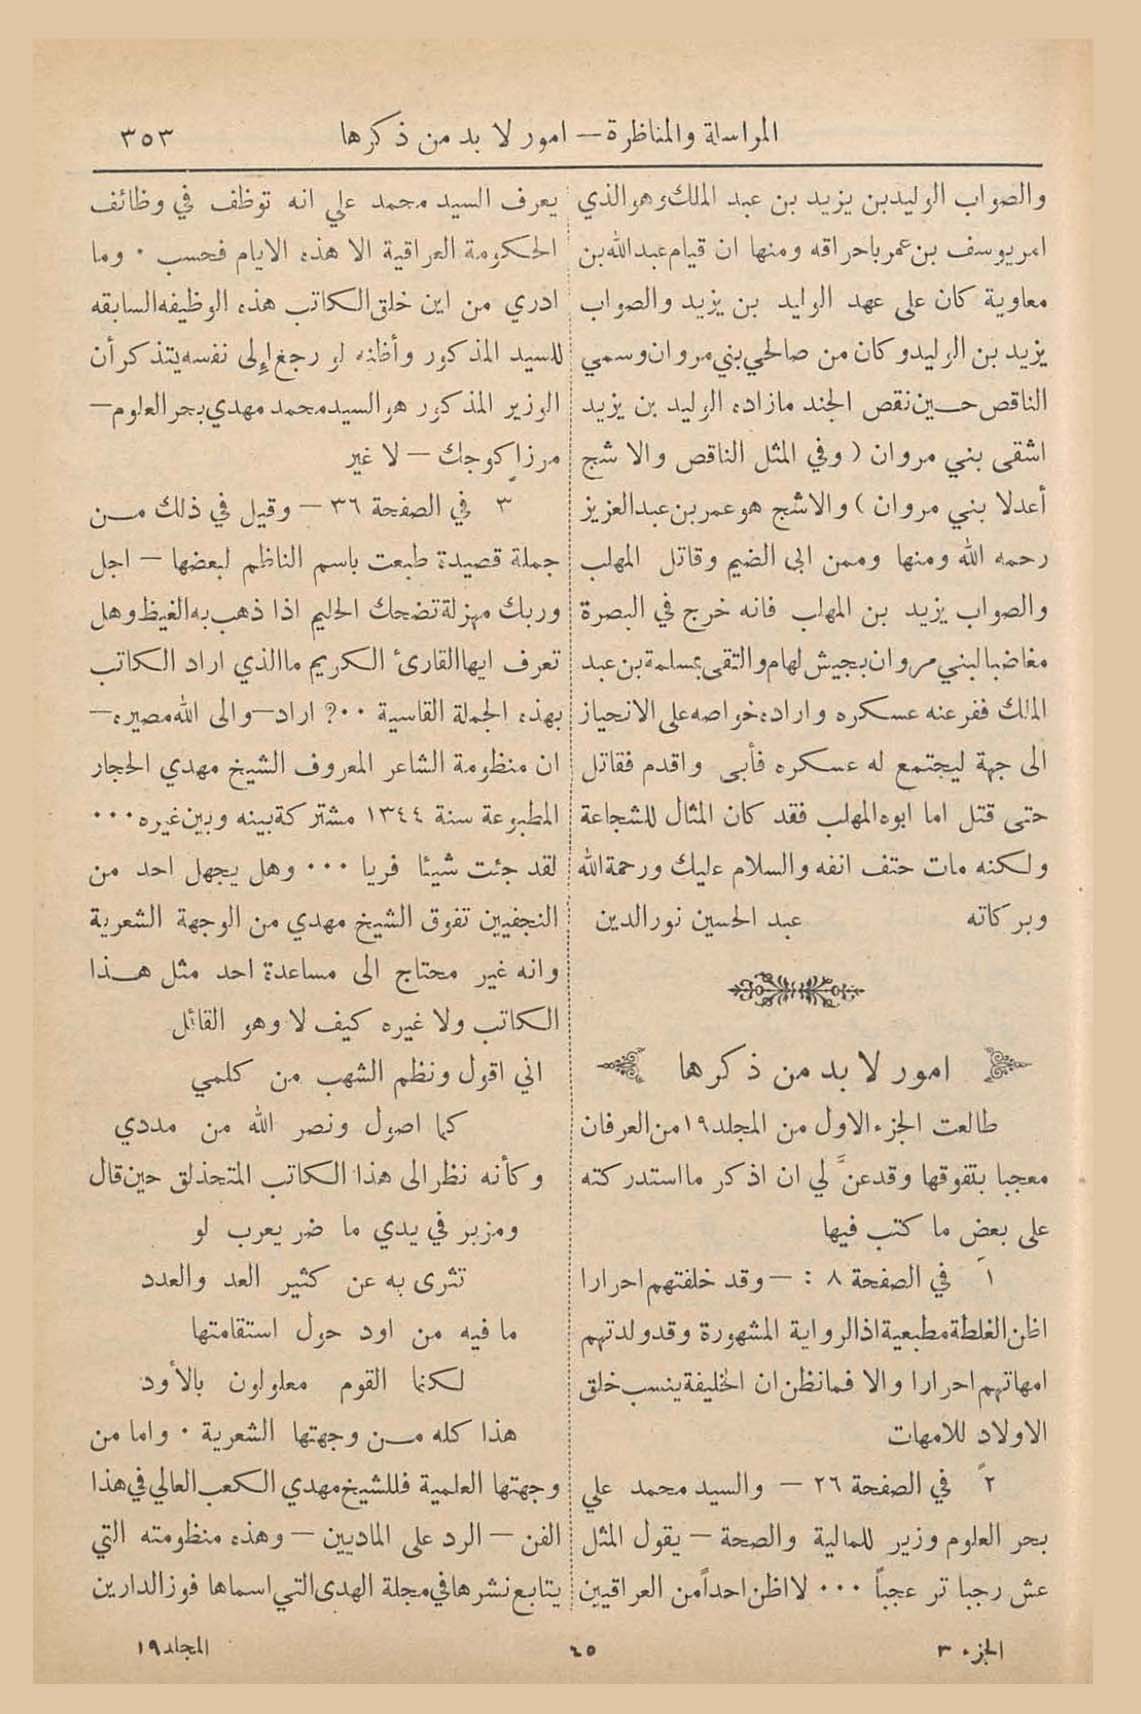 المراسلة والمناظرة — امور لا بد من ذكرها
٣٥٣
والصواب الوليد بن يزيد بن عبد الملك وهو الذي
امر يوسف بن عمر باحراقه ومنها ان قيام عبد الله بن
معاوية كان على عهد الوليد بن يزيد والصواب
يزيد بن الوليد وكان من صالحي بني مروان وسمي
الناقص حين نقص الجند مازاده الوليد بن يزيد
اشقى بني مروان ( وفي المثل الناقص والاشج
أعدلا بني مروان ) والاشج هو عمر بن عبد العزيز
رحمه الله ومنها وممن ابى الضيم وقاتل المهلب
والصواب يزيد بن المهلب فانه خرج في البصرة
مغاضبا لبني مروان بجيش لهام والتقى بمسلمة بن عبد
الملك ففر عنه عسكره واراده خواصه على الانحياز
الى جهة ليجتمع له عسكره فأبى واقدم فقاتل
حتى قتل اما ابوه المهلب فقد كان المثال للشجاعة
ولكنه مات حتف انفه والسلام عليك ورحمة الله
وبركاته عبد الحسين نور الدين
امور لا بد من ذكرها
طالعت الجزء الاول من المجلد ١٩ من العرفان
معجبا بتفوقها وقد عنَّ لي ان اذكر ما استدركته
على بعض ما كتب فيها
١ً في الصفحة ٨ : — وقد خلفتهم احرارا
اظن الغلطة مطبعية اذ الرواية المشهورة وقد ولدتهم
امهاتهم احرارا والا فما نظن ان الخليفة ينسب خلق
الاولاد للامهات
٢ً في الصفحة ٢٦ — والسيد محمد علي
بحر العلوم وزير للمالية والصحة — يقول المثل
عش رجبا تر عجباً ٠٠٠ لا اظن احداً من العراقيين
يعرف السيد محمد علي انه توظف في وظائف
الحكومة العراقية الا هذه الايام فحسب ٠ وما
ادري من اين خلق الكاتب هذه الوظيفه السابقه
للسيد المذكور وأظنه لو رجع إلى نفسه يتذكر أن
الوزير المذكور هو السيد محمد مهدي بحر العلوم —
مرزا كوجك — لا غير
٣ً في الصفحة ٣٦ — وقيل في ذلك من
جملة قصيدة طبعت باسم الناظم لبعضها — اجل
وربك مهزلة تضحك الحليم اذا ذهب به الغيظ وهل
تعرف ايها القارئ الكريم ما الذي اراد الكاتب
بهذه الجملة القاسية ٠٠؟ اراد — والى الله مصيره —
ان منظومة الشاعر المعروف الشيخ مهدي الحجار
المطبوعة سنة ١٣٤٤ مشتركة بينه وبين غيره ٠٠٠
لقد جئت شيئا فريا ٠٠٠ وهل يجهل احد من
النجفيين تفوق الشيخ مهدي من الوجهة الشعرية
وانه غير محتاج الى مساعدة احد مثل هذا
الكاتب ولا غيره كيف لا وهو القائل
اني اقول ونظم الشهب من كلمي
كما اصول ونصر الله من مددي
وكأنه نظر الى هذا الكاتب المتحذلق حين قال
ومزبر في يدي ما ضر يعرب لو
تثرى به عن كثير العد والعدد
ما فيه من اود حول استقامتها
لكنما القوم معلولون بالأود
هذا كله من وجهتها الشعرية ٠ واما من
وجهتها العلمية فللشيخ مهدي الكعب العالي في هذا
الفن — الرد على الماديين — وهذه منظومته التي
يتابع نشرها في مجلة الهدى التي اسماها فوز الدارين
الجزء ٣
٤٥
المجلد ١٩